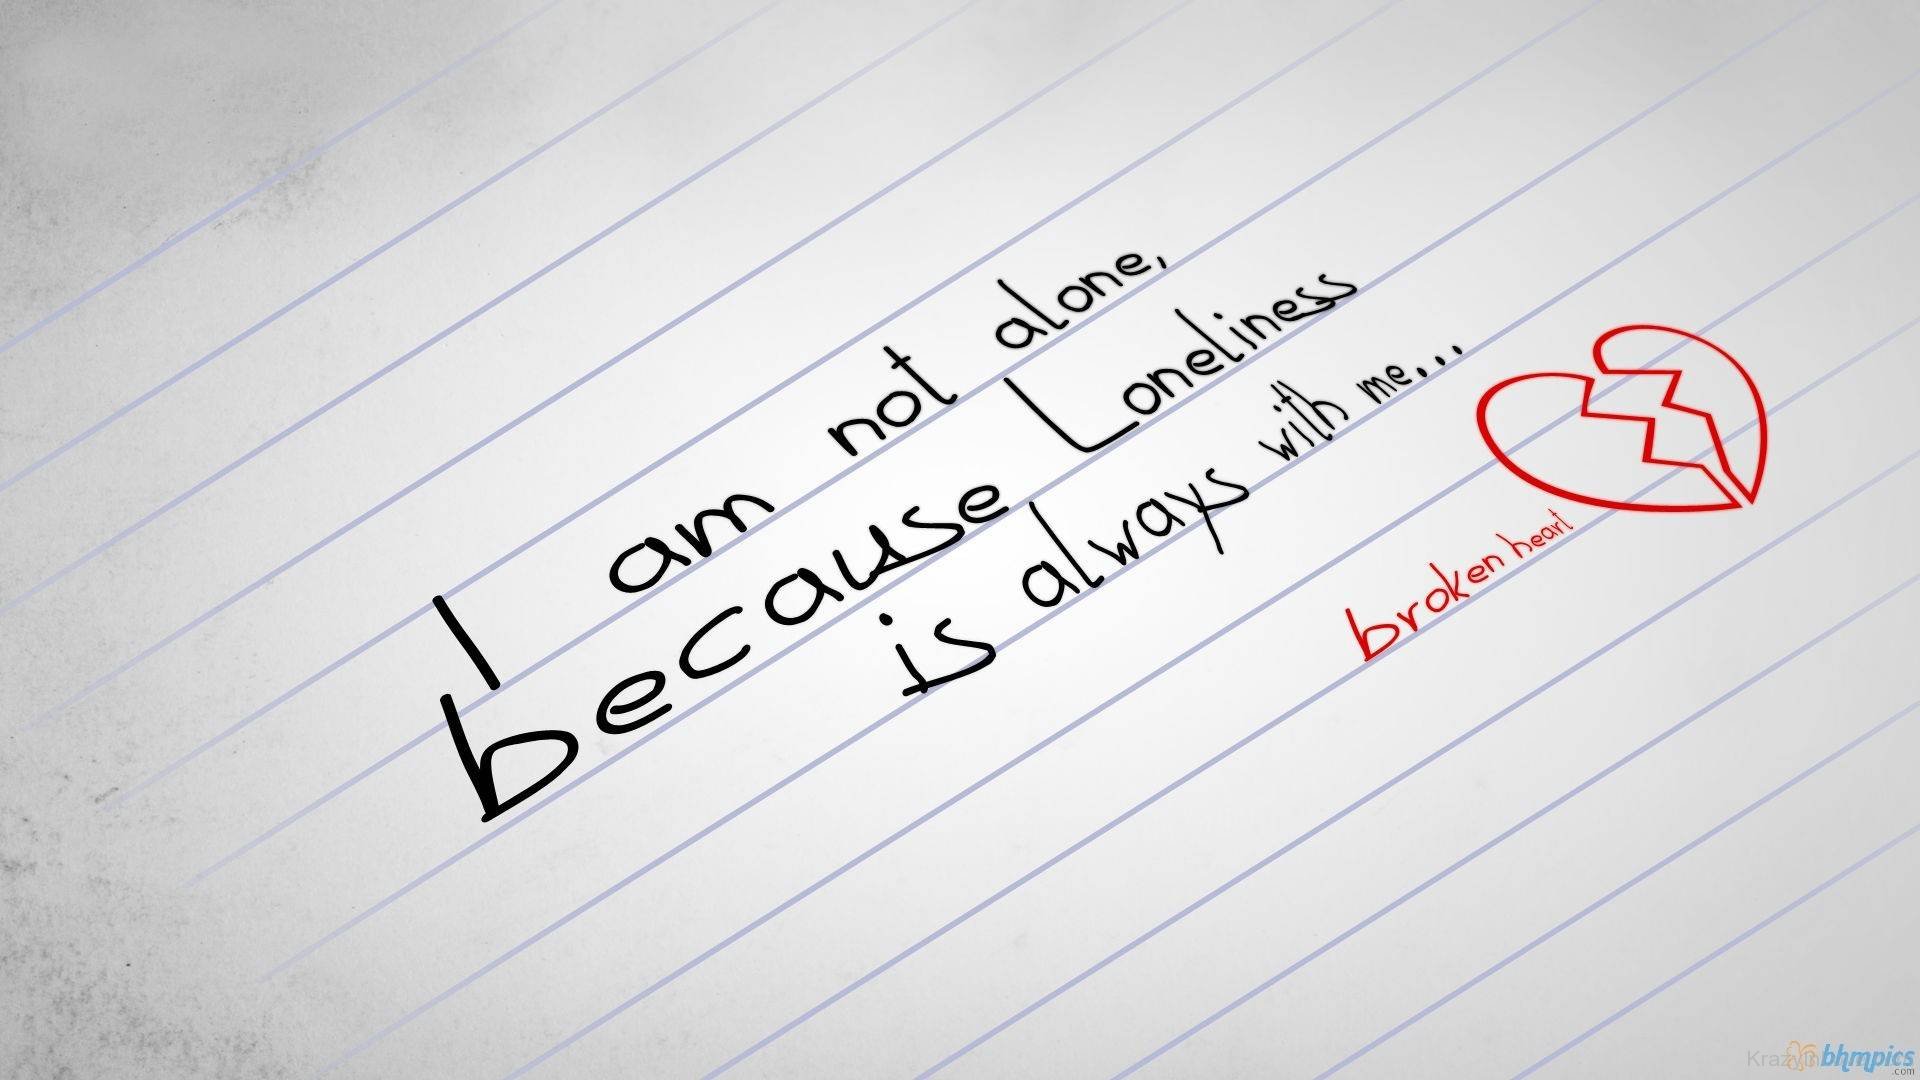 I am not alone,
because Loneliness
is always with me...
broken heart
bhmpics
.com